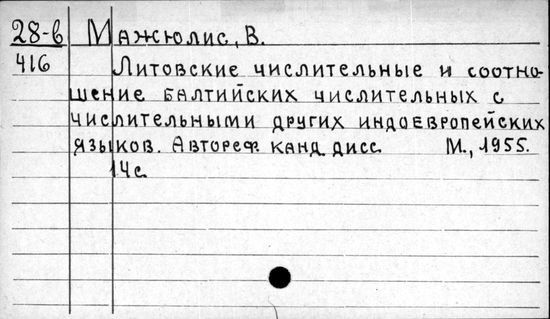 28-в Мажюлис, В.
416 Литовские числительные и соотно-
шение балтийских числительных с
числительными других индоевропейских
языков. Автореф. канд. дисс. М., 1955.
14с.